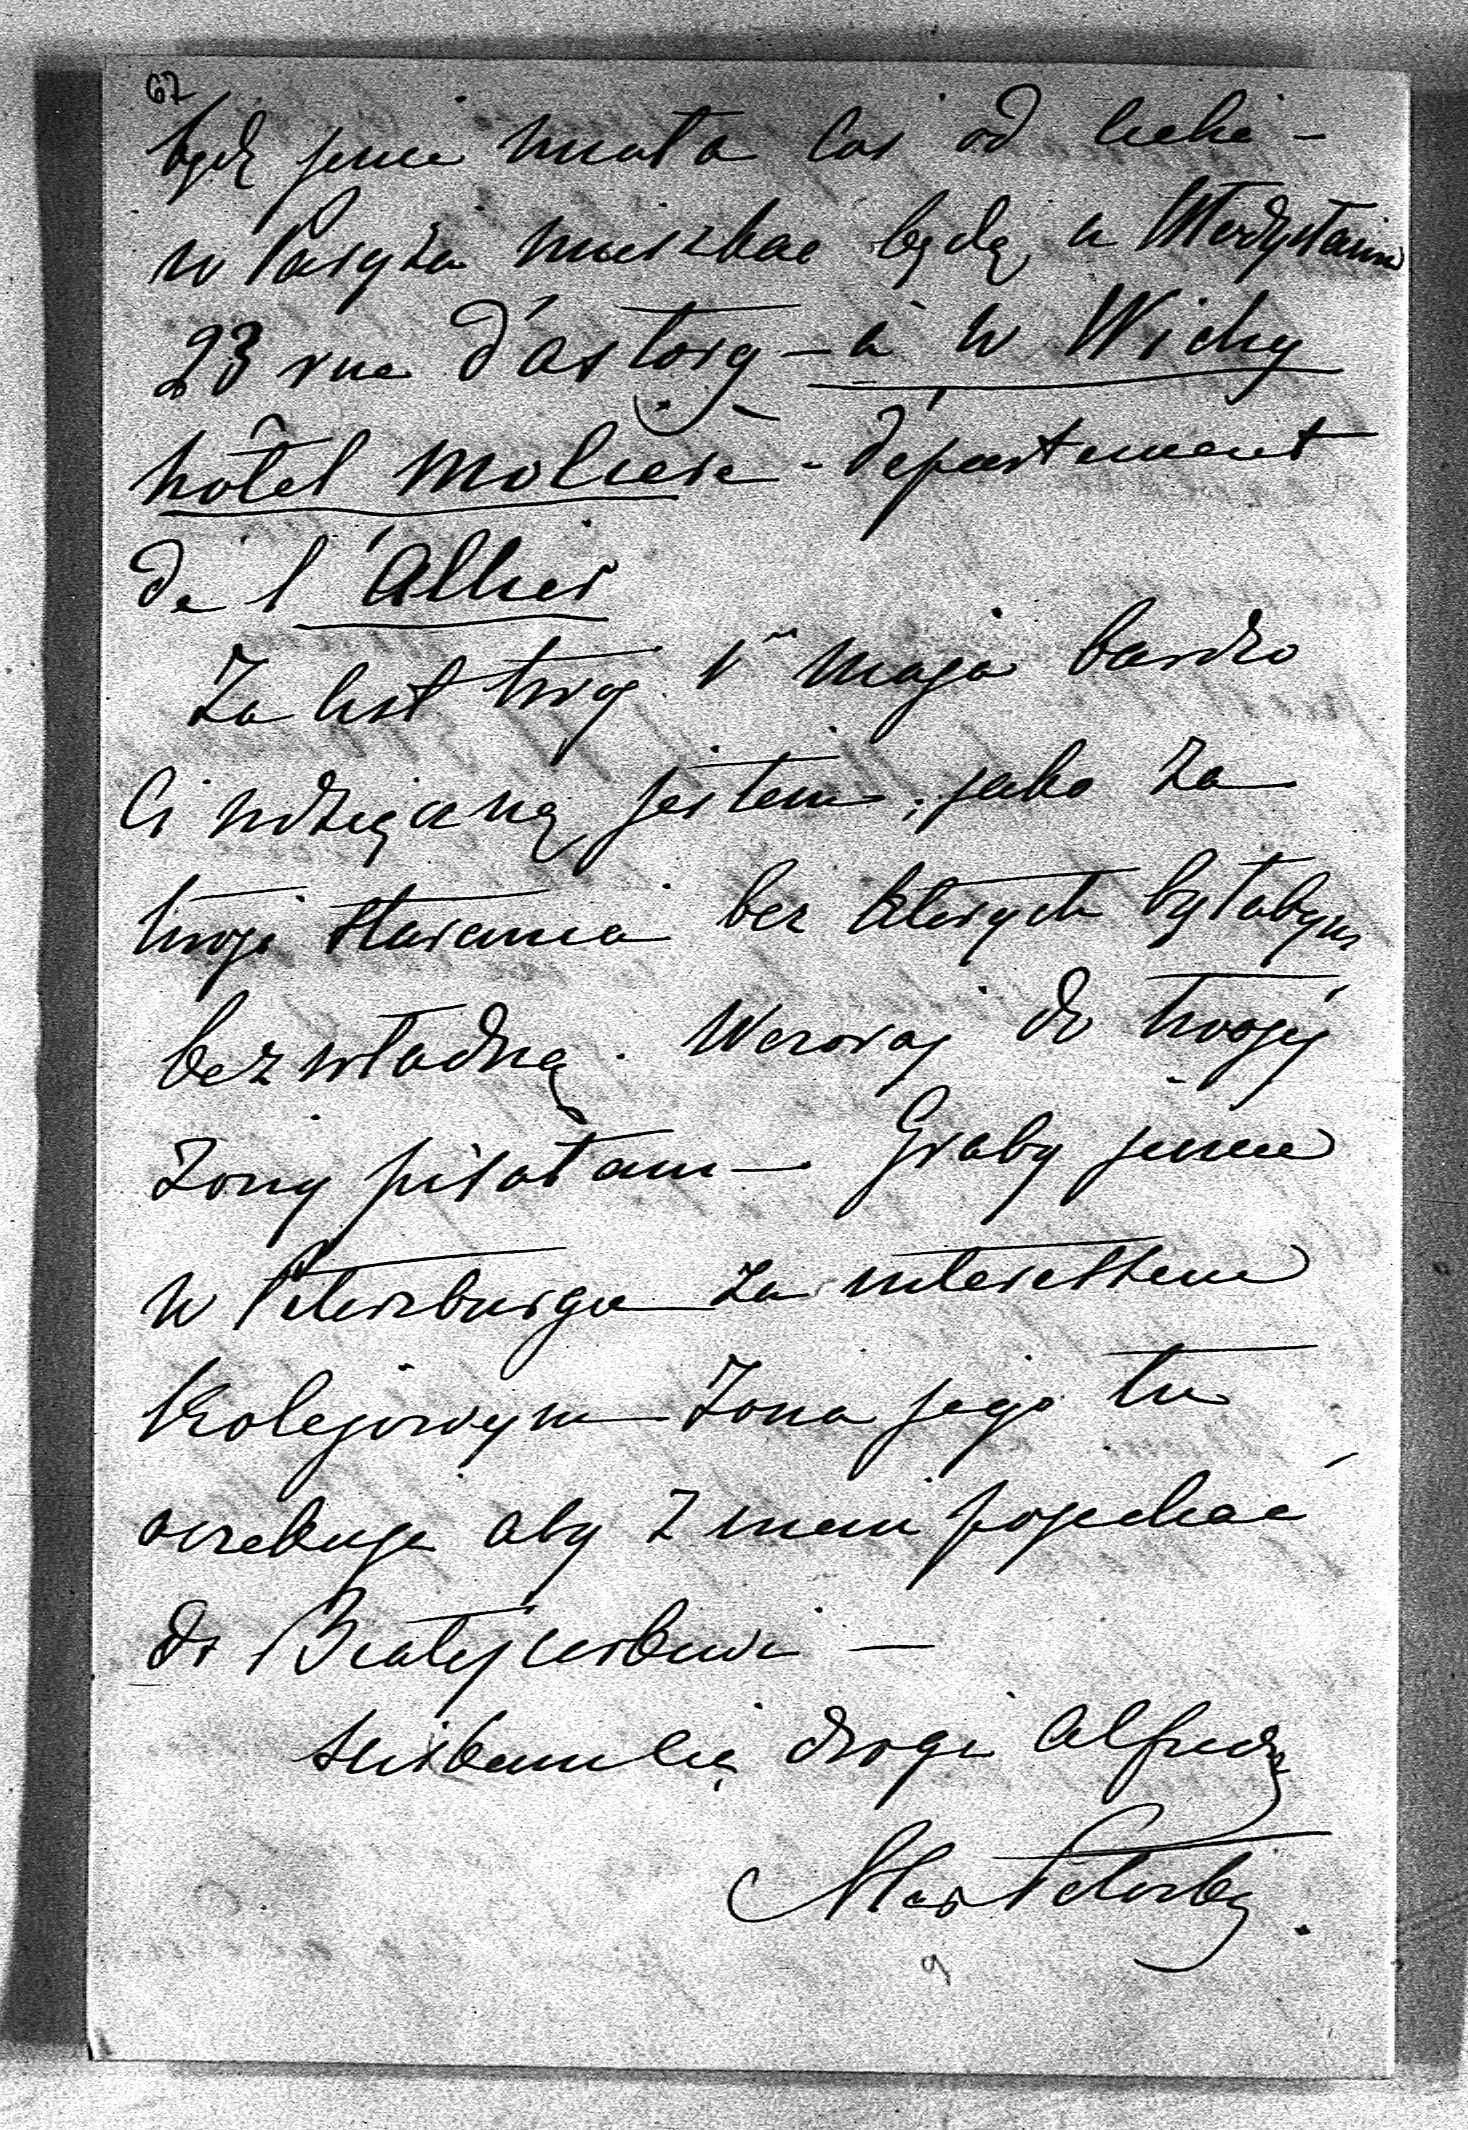 67
będę jeszcze miała coś od ciebie -
w Paryżu mieszkać będę u Władysława
23 rue d'astorg - a w Wichy
hôtel Moliere - département
de l'Allier
Za list twój 1 maja bardzo
Ci wdzięczną jestem, jako za
twoje starania bez których byłabym
bezwładną. Wczoraj do twojej
żony pisałam - Graby jeszcze
w Petersburgu za interessem
kolejowym - Żona jego tu
oczekuje aby z nim pojechać
do Białejcerkwi -
sciskam cię drogi Alfredzie
Mar Potocka.
9